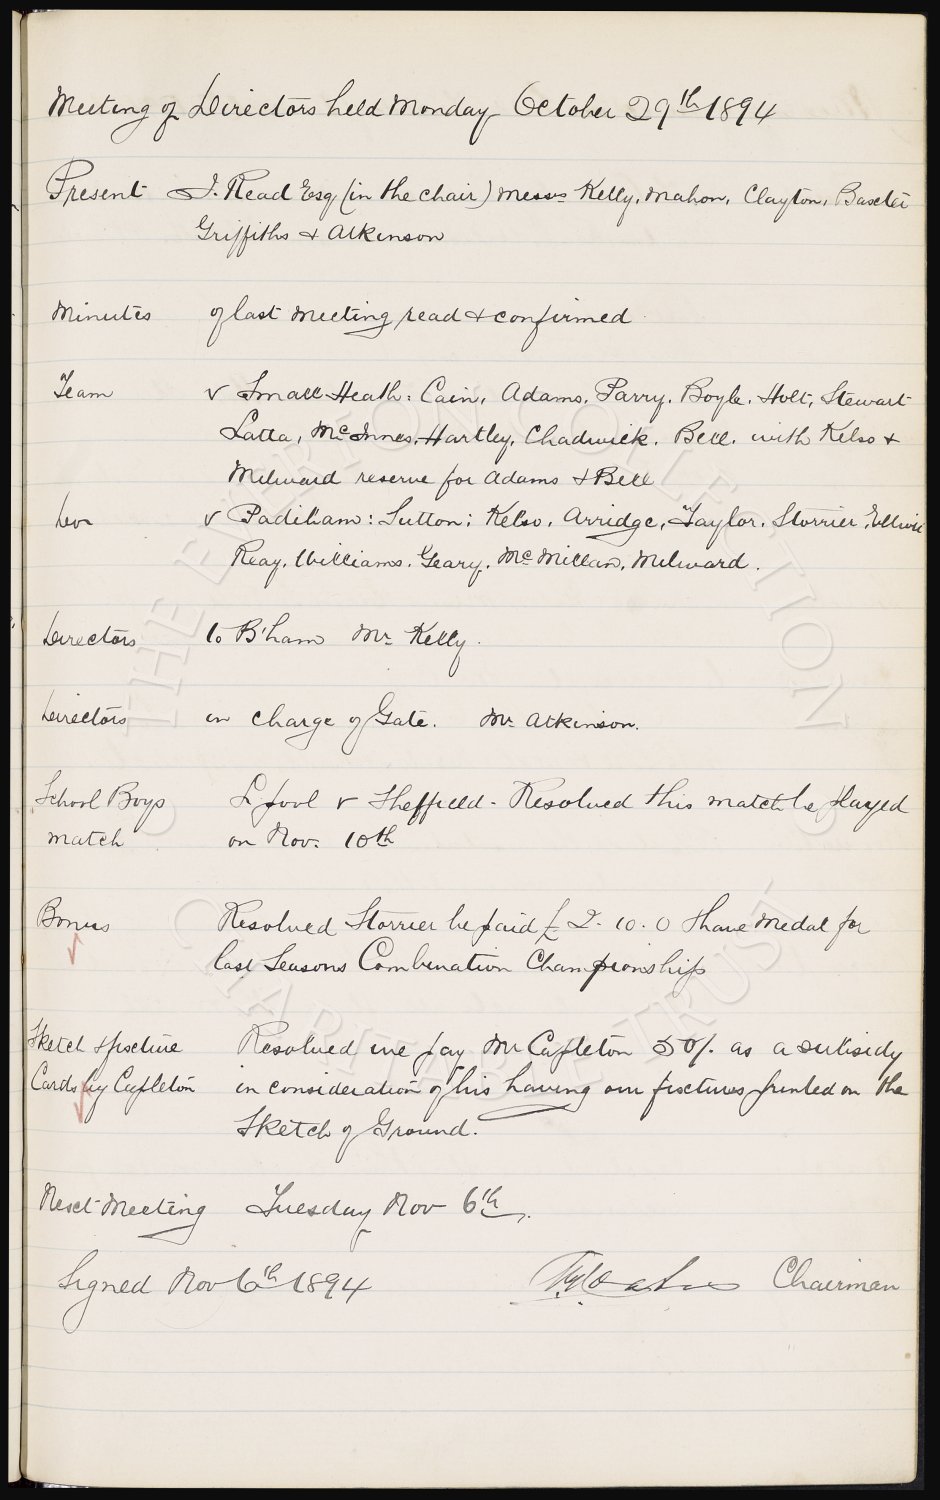 Meeting of Directors held Monday October 29th 1894
Present J. Read Esq (in the chair) Messrs Kelly, Mahon, Clayton, Baxter
Griffiths & Atkinson
Minutes of last meeting read & confirmed
Team v Small Heath: Cain, Adams, Parry, Boyle, Holt, Stewart
Latta, McInnes, Hartley, Chadwick, Bell. with Kelso &
Milward reserve for Adams & Bell
Do v Padiham: Sutton; Kelso, Arridge, Taylor, Storrier, Elliott
Reay, Williams, Geary, McMillan, Milward.
Directors to B'ham Mr Kelly.
Directors in charge of Gate. Mr Atkinson.
School Boys L'pool v Sheffield - Resolved this match be played
match on Nov. 10th
Bonus Resolved Storrier be paid £2-10.0 & have Medal for
last Seasons Combination Championship
Sketch & fixture Resolved we pay Mr Capleton 50/. as a subsidy
Cards by Capleton in consideration of his having our fixtures printed on the
Sketch of Ground.
Next Meeting Tuesday Nov 6th.
Signed Nov 6th 1894 Chairman
THE EVERTON COLLECTION
CHARITABLE TRUST